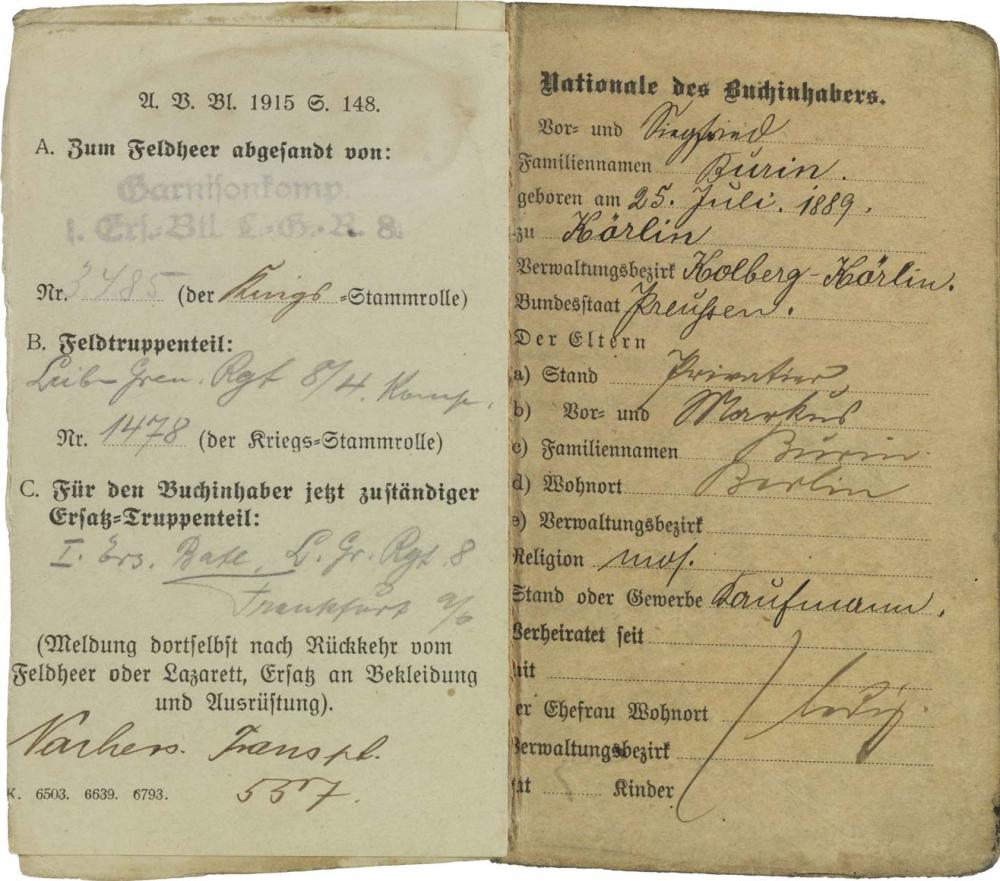 A. V. Bl. 1915 S. 148.
A. Zum Feldheer abgesandt von:
Garnisonkomp.
I. Ers.-Btl. L.-G.-R. 8.
Nr. 3485 (der Kriegs-Stammrolle)
B. Feldtruppenteil:
Leib-Gren. Rgt 8/4. Komp.
Nr. 1478 (der Kriegs-Stammrolle)
C. Für den Buchinhaber jetzt zuständiger
Ersatz-Truppenteil:
I. Ers. Batl. L. Gr. Rgt. 8
Frankfurt a/o
(Meldung dortselbst nach Rückkehr vom
Feldheer oder Lazarett, Ersatz an Bekleidung
und Ausrüstung).
Transpt.
557.
K. 6503. 6639. 6793.
Nationale des Buchinhabers.
Vor- und Siegfried
Familiennamen Burin.
geboren am 25. Juli. 1889.
zu Körlin
Verwaltungsbezirk Kolberg-Körlin.
Bundesstaat Preußen.
Der Eltern
a) Stand Privatier
b) Vor- und Markus
c) Familiennamen Burin
d) Wohnort Berlin
e) Verwaltungsbezirk
Religion mos.
Stand oder Gewerbe Kaufmann.
Verheiratet seit
mit
der Ehefrau Wohnort ledig.
Verwaltungsbezirk
hat Kinder